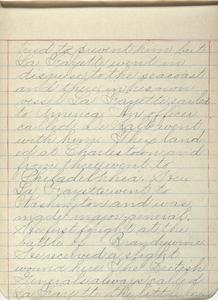 tried to prevent him but
La Fayette went in
disguise to the seacoast
and there in his own
vessel La Fayette sailed
to America. An officer
called De Kalb went
with him. They land
ed at Charlestown and
from there went to
Philadelphia. Soon
La Fayette went to
Washington and was
made major general.
He first fought at the
battle of Brandywine
He received a slight
wound here. The British
Generals always called
La Fayette the